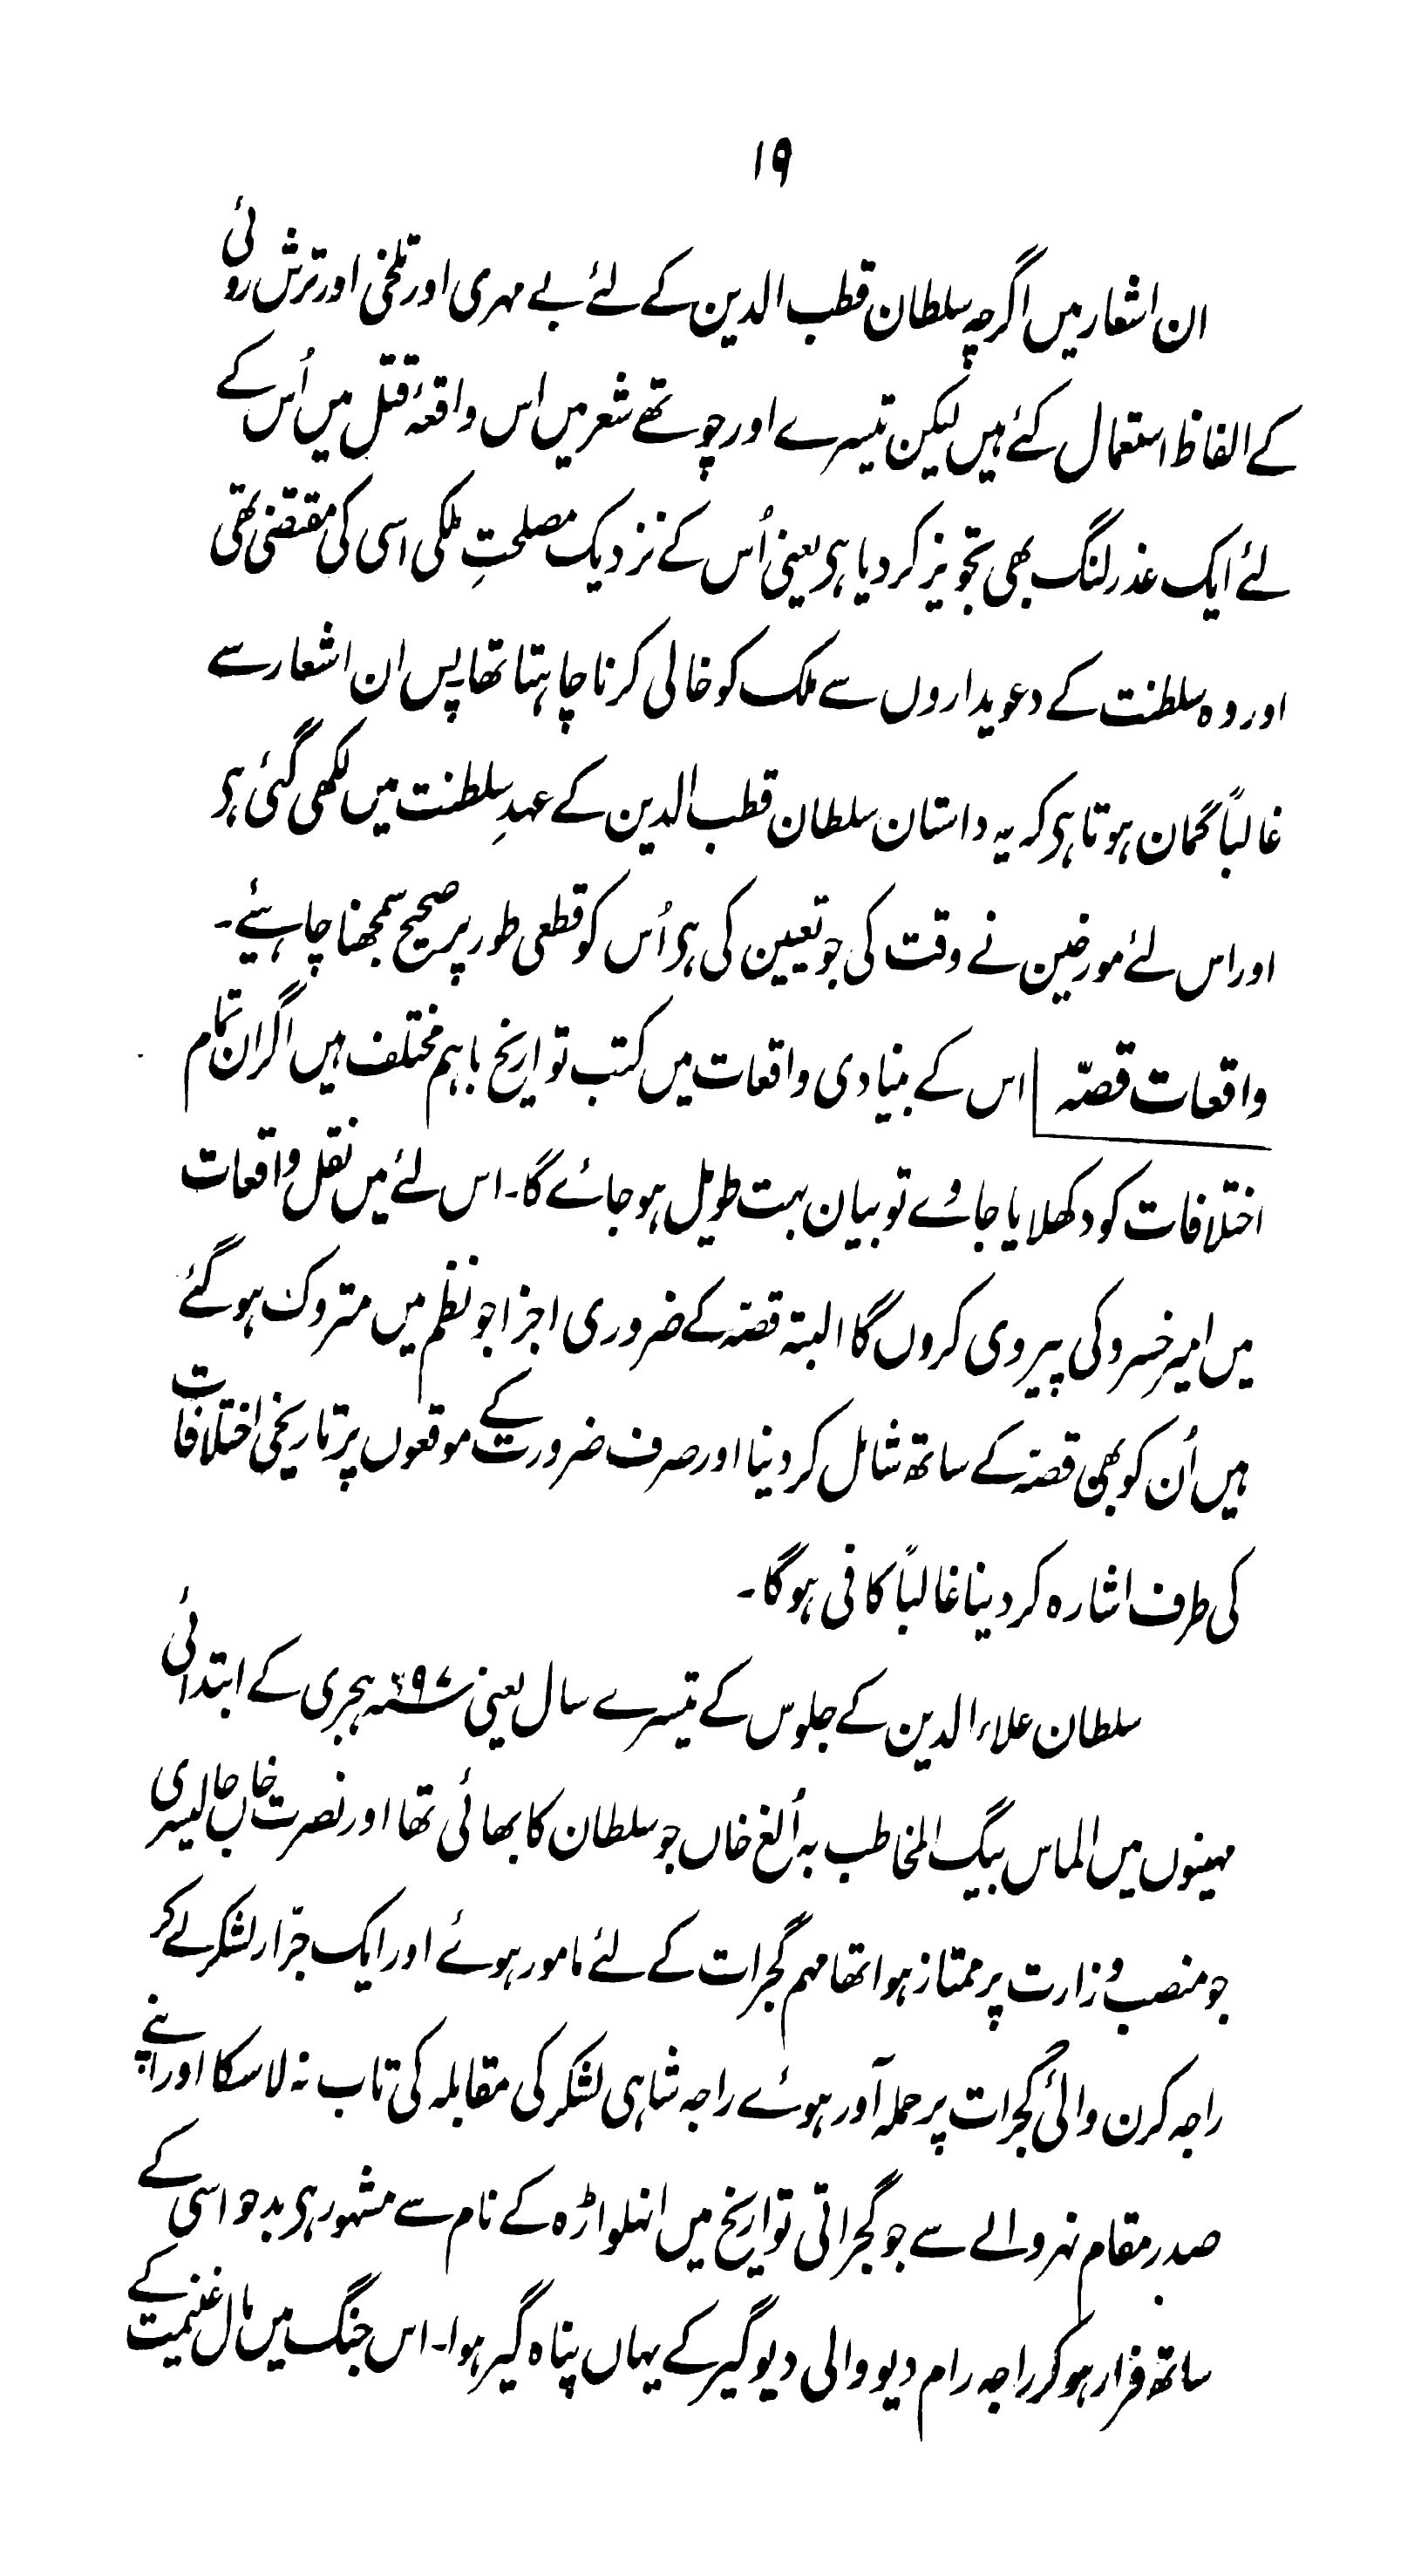 ۱۹
ان اشعار میں اگرچہ سلطان قطب الدین کے لئے بے مہری اور تلخی اور ترش روئی
کے الفاظ استعمال کئے ہیں لیکن تیسرے اور چوتھے شعر میں اس واقعۂ قتل میں اُس کے
لئے ایک عذر لنگ بھی تجویز کر دیا ہی یعنی اُس کے نزدیک مصلحتِ ملکی اسی کی مقتضی تھی
اور وہ سلطنت کے دعویداروں سے ملک کو خالی کرنا چاہتا تھا پس ان اشعار سے
غالباً گمان ہوتا ہی کہ یہ داستان سلطان قطب الدین کے عہدِ سلطنت میں لکھی گئی ہی
اور اس لئے مورخین نے وقت کی جو تعیین کی ہی اُس کو قطعی طور پر صحیح سمجھنا چاہئیے۔
واقعات قصّہ اس کے بنیادی واقعات میں کتب تواریخ باہم مختلف ہیں اگر ان تمام
اختلافات کو دکھلایا جاوے تو بیان بہت طویل ہو جائے گا۔ اس لئے میں نقل واقعات
میں امیر خسرو کی پیروی کروں گا البتہ قصّہ کے ضروری اجزا جو نظم میں متروک ہو گئے
ہیں اُن کو بھی قصّہ کے ساتھ شامل کر دینا اور صرف ضرورت کے موقعوں پر تاریخی اختلافات
کی طرف اشارہ کر دینا غالباً کافی ہوگا۔
سلطان علاء الدین کے جلوس کے تیسرے سال یعنی ۶۹۷؁ ہجری کے ابتدائی
مہینوں میں الماس بیگ المخاطب بہ اُلغ خاں جو سلطان کا بھائی تھا اور نصرت خاں جالیسری
جو منصب وزارت پر ممتاز ہوا تھا مہم گجرات کے لئے مامور ہوئے اور ایک جرّار لشکر لے کر
راجہ کرن والئ گجرات پر حملہ آور ہوئے راجہ شاہی لشکر کی مقابلہ کی تاب نہ لا سکا اور اپنے
صدر مقام نہروالے سے جو گجراتی تواریخ میں انہلواڑہ کے نام سے مشہور ہی بدحواسی کے
ساتھ فرار ہو کر راجہ رام دیو والی دیوگیر کے یہاں پناہ گیر ہوا۔ اس جنگ میں مال غنیمت کے